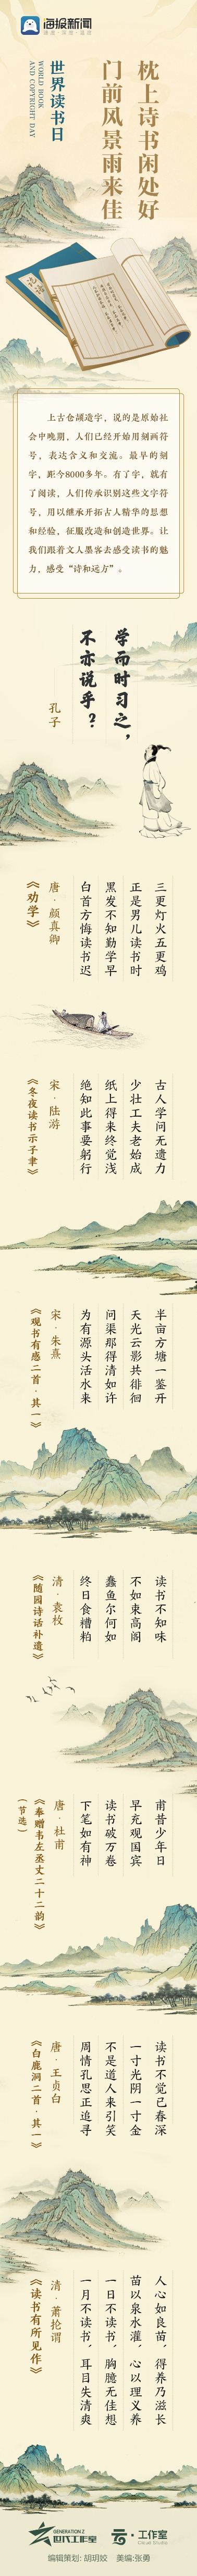 海报新闻
枕上诗书闲处好
门前风景雨来佳
世界读书日
WORLD BOOK
AND COPYRIGHT DAY
上古仓颉造字，说的是原始社
会中晚期，人们已经开始用刻画符
号，表达含义和交流。最早的刻
字，距今8000多年。有了字，就有
了阅读，人们传承识别这些文字符
号，用以继承开拓古人精华的思想
和经验，征服改造和创造世界。让
我们跟着文人墨客去感受读书的魅
力，感受“诗和远方”。
学而时习之，
不亦说乎？
孔子
三更灯火五更鸡
正是男儿读书时
黑发不知勤学早
白首方悔读书迟
唐·颜真卿
《劝学》
古人学问无遗力
少壮工夫老始成
纸上得来终觉浅
绝知此事要躬行
宋·陆游
《冬夜读书示子聿》
半亩方塘一鉴开
天光云影共徘徊
问渠那得清如许
为有源头活水来
宋·朱熹
《观书有感二首·其一》
读书不知味
不如束高阁
蠢鱼尔何如
终日食糟粕
清·袁枚
《随园诗话补遗》
甫昔少年日
早充观国宾
读书破万卷
下笔如有神
唐·杜甫
《奉赠韦左丞丈二十二韵》
（节选）
读书不觉已春深
一寸光阴一寸金
不是道人来引笑
周情孔思正追寻
唐·王贞白
《白鹿洞二首·其一》
人心如良苗，得养乃滋长
苗以泉水灌，心以理义养
一日不读书，胸臆无佳想
一月不读书，耳目失清爽
清·萧抡谓
《读书有所见作》
GENERATION Z
Z世代工作室
云·工作室
Cloud Studio
编辑策划：胡玥姣 美编：张勇